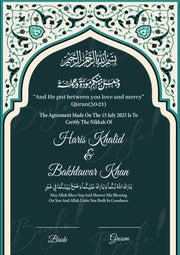 بسم الله الرحمن الرحيم
وجعل بينكم مودة ورحمة
"And He put between you love and mercy"
Quran(30:21)
The Agreement Made On The 15 July 2023 Is To
Certify The Nikkah Of
Haris Khalid
&
Bakhtawar Khan
بارك الله لكما وبارك عليكما وجمع بينكما في خير
May Allah Bless You And Shower His Blessing
On You And Allah Unite You Both In Goodness
Bride
Groom